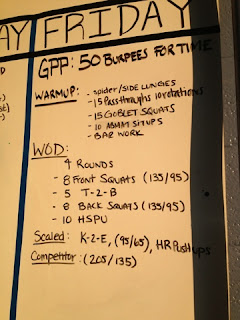 AY FRIDAY
GPP: 50 BURPEES FOR TIME
WARMUP: - spider/SIDE LUNGES
- 15 Pass throughs 10 rotations
- 15 GOBLET SQUATS
- 10 ABMAT SITUPS
- BAR WORK
WOD:
4 ROUNDS
- 8 FRONT SQUATS (135/95)
- 5 T-2-B
- 8 BACK SQUATS (135/95)
- 10 HSPU
Scaled: K-2-E, (95/65), HR Pushups
Competitor: (205/135)